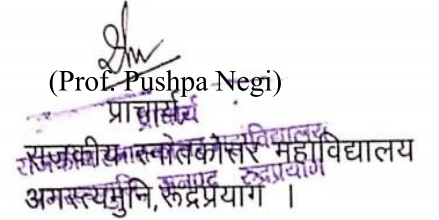 (Prof. Pushpa Negi)
प्राचार्य
राजकीय स्नातकोत्तर महाविद्यालय
अगस्त्यमुनि, रूद्रप्रयाग ।